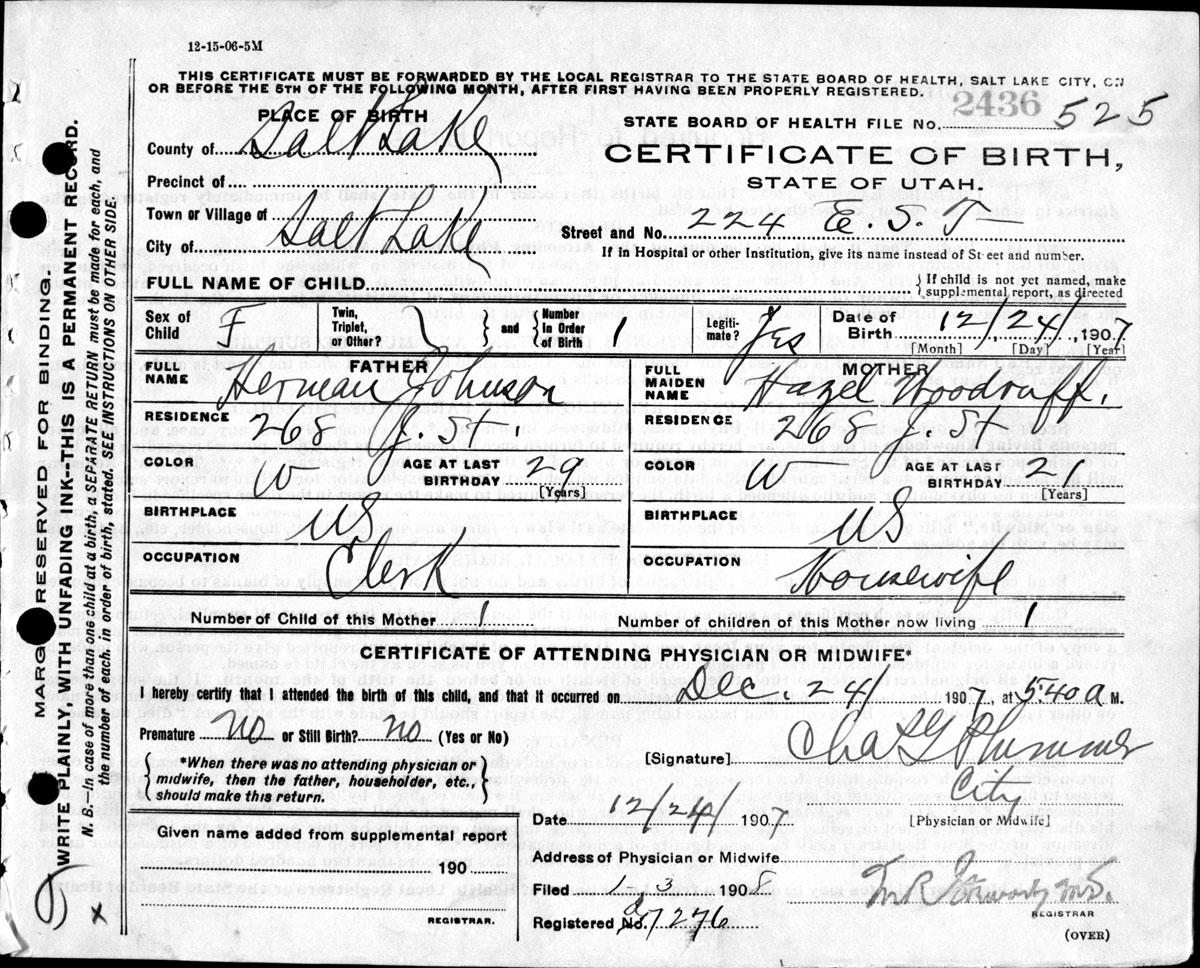 12-15-06-5M
THIS CERTIFICATE MUST BE FORWARDED BY THE LOCAL REGISTRAR TO THE STATE BOARD OF HEALTH, SALT LAKE CITY, ON
OR BEFORE THE 5TH OF THE FOLLOWING MONTH, AFTER FIRST HAVING BEEN PROPERLY REGISTERED.
2436
PLACE OF BIRTH
STATE BOARD OF HEALTH FILE No. 525
County of Salt Lake
CERTIFICATE OF BIRTH,
Precinct of
STATE OF UTAH.
Town or Village of
Street and No. 224 E. S. T
City of Salt Lake
If in Hospital or other Institution, give its name instead of Street and number.
FULL NAME OF CHILD
If child is not yet named, make
supplemental report, as directed
Sex of Child F Twin, Triplet, or Other? and Number in Order of Birth 1 Legiti- mate? Yes Date of Birth 12/24/1907
[Month] [Day] [Year]
FATHER
FULL NAME Herman Johnson
MOTHER
FULL MAIDEN NAME Hazel Woodruff.
RESIDENCE 268 J. St.
RESIDENCE 268 J. St
COLOR W AGE AT LAST BIRTHDAY 29 [Years]
COLOR W AGE AT LAST BIRTHDAY 2- [Years]
BIRTHPLACE US
BIRTHPLACE US
OCCUPATION Clerk
OCCUPATION Housewife
Number of Child of this Mother 1
Number of children of this Mother now living 1
CERTIFICATE OF ATTENDING PHYSICIAN OR MIDWIFE*
I hereby certify that I attended the birth of this child, and that it occurred on Dec. 24 1907, at 5:40 a M.
Premature No or Still Birth? No (Yes or No)
[Signature] Chas G Plummer
City
[Physician or Midwife]
*When there was no attending physician or
midwife, then the father, householder, etc.,
should make this return.
Date 12/24/1907
Given name added from supplemental report
190
REGISTRAR.
Address of Physician or Midwife
Filed 1-3 1908
Registered No. 7276
M.D.
REGISTRAR
(OVER)
MARGIN RESERVED FOR BINDING.
WRITE PLAINLY, WITH UNFADING INK--THIS IS A PERMANENT RECORD.
N. B.—In case of more than one child at a birth, a SEPARATE RETURN must be made for each, and
the number of each, in order of birth, stated SEE INSTRUCTIONS ON OTHER SIDE.